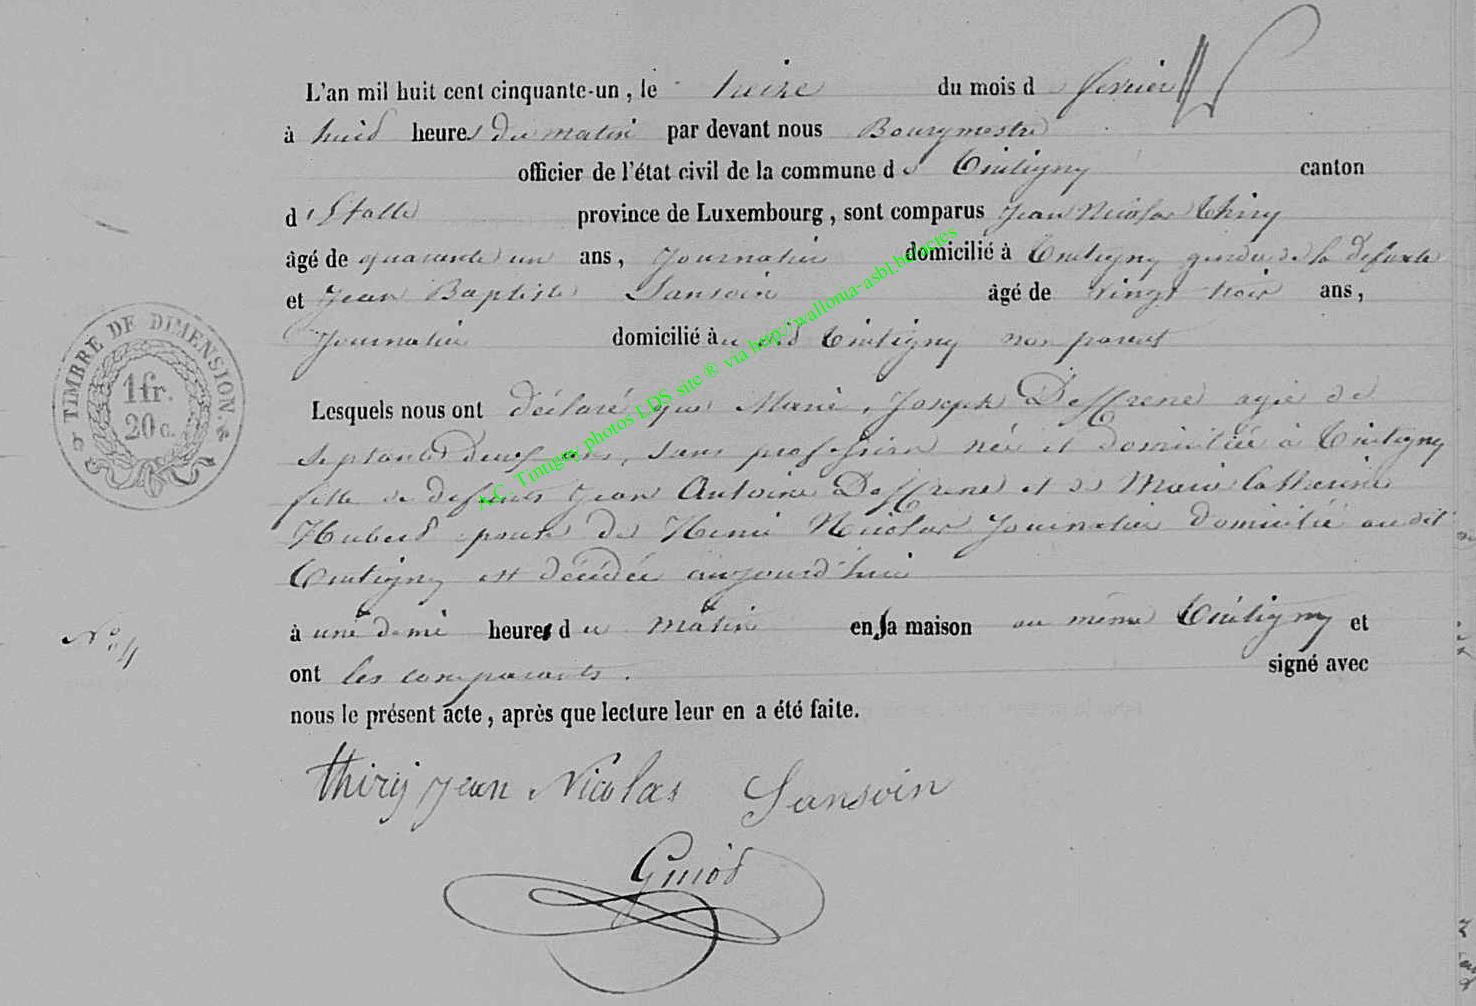 L'an mil huit cent cinquante-un, le treize du mois d fevrier
à huit heures du matin par devant nous Bourgmestre
officier de l'état civil de la commune de Tintigny canton
d'Etalle province de Luxembourg, sont comparus Jean Nicolas Thiry
âgé de quarante un ans, Journalier domicilié à Tintigny gendre de la defunte
et Jean Baptiste Sansoin âgé de vingt trois ans,
Journalier domicilié au dit Tintigny non parent
Lesquels nous ont déclaré que Marie, Joseph Deffrene agée de
septante deux ans, sans profession née et domiciliée à Tintigny
fille de defunts Jean Antoine Deffrene et de Marie Catherine
Hubert de Henri Nicolas Journalier domicilié au dit
Tintigny est décédée aujourd'hui
à une demi heures du matin en sa maison au même Tintigny et
ont les comparants. signé avec
nous le présent acte, après que lecture leur en a été faite.
thirij jean Nicolas Sansoin
Guiot
N° 4
TIMBRE DE DIMENSION.
1 fr.
20 c.
A.C. Tintigny photos LDS site ® via http://wallonia-asbl.be/actes